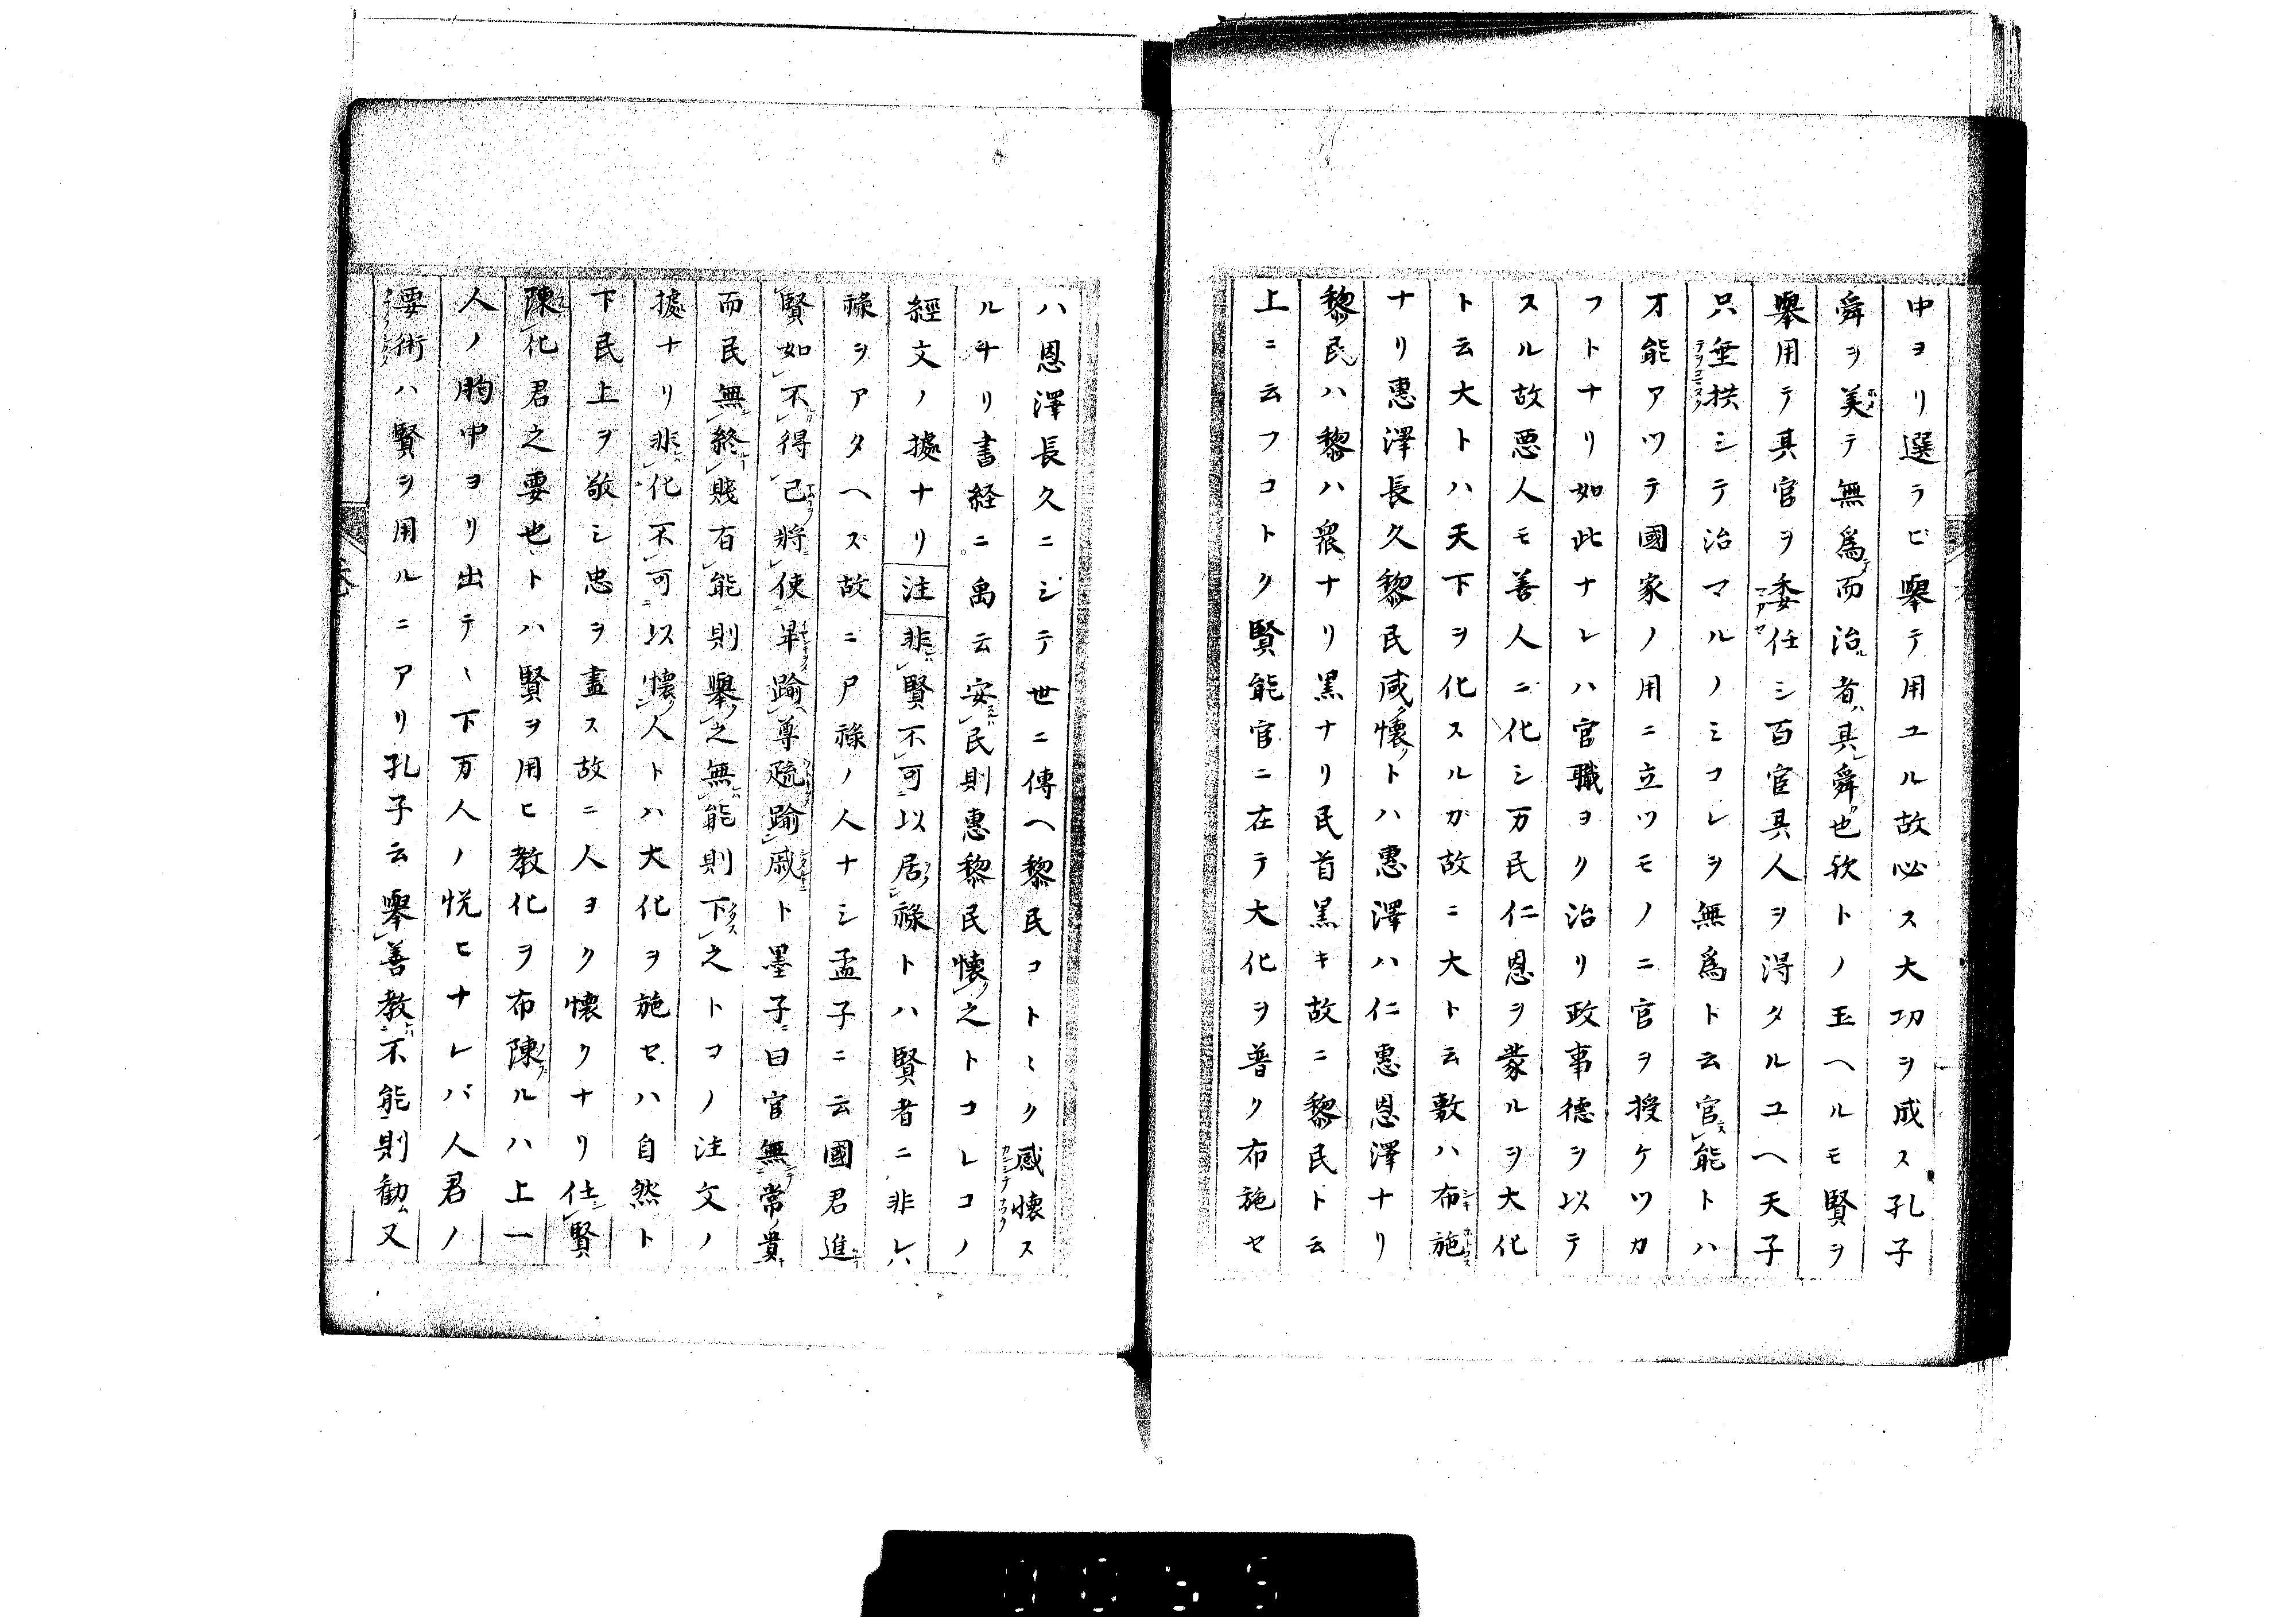 中ヨリ選ラビ擧テ用ユル故必ス大功ヲ成ス孔子
舜ヲ美テ無爲而治者其舜也欤トノ玉ヘルモ賢ヲ
擧用テ其官ヲ委任シ百官其人ヲ得タルユヘ天子
只垂拱シテ治マルノミコレヲ無爲ト云官能トハ
才能アツテ國家ノ用ニ立ツモノニ官ヲ授ケツカ
フトナリ如此ナレハ官職ヨク治リ政事德ヲ以テ
スル故悪人モ善人ニ化シ万民仁恩ヲ蒙ルヲ大化
ト云大トハ天下ヲ化スルガ故ニ大ト云敷ハ布施
ナリ惠澤長久黎民咸懐トハ惠澤ハ仁惠恩澤ナリ
黎民ハ黎ハ衆ナリ黒ナリ民首黒キ故ニ黎民ト云
上ニ云フコトク賢能官ニ在テ大化ヲ普ク布施セ
ハ恩澤長久ニシテ世ニ傳ヘ黎民コトヽク感懐ス
ルナリ書経ニ禹云安民則惠黎民懐之トコレコノ
經文ノ據ナリ注非賢不可以居祿トハ賢者ニ非レハ
祿ヲアタヘズ故ニ尸祿ノ人ナシ孟子ニ云國君進
賢如不得已將使卑踰尊疏踰戚ト墨子曰官無常貴
而民無終賎有能則擧之無能則下之トコノ注文ノ
據ナリ非化不可以懐人トハ大化ヲ施セハ自然ト
下民上ヲ敬シ忠ヲ盡ス故ニ人ヨク懐クナリ任賢
陳化君之要也トハ賢ヲ用ヒ教化ヲ布陳ルハ上一
人ノ胸中ヨリ出テヽ下万人ノ悦ヒナレバ人君ノ
要術ハ賢ヲ用ルニアリ孔子云擧善教不能則勸又